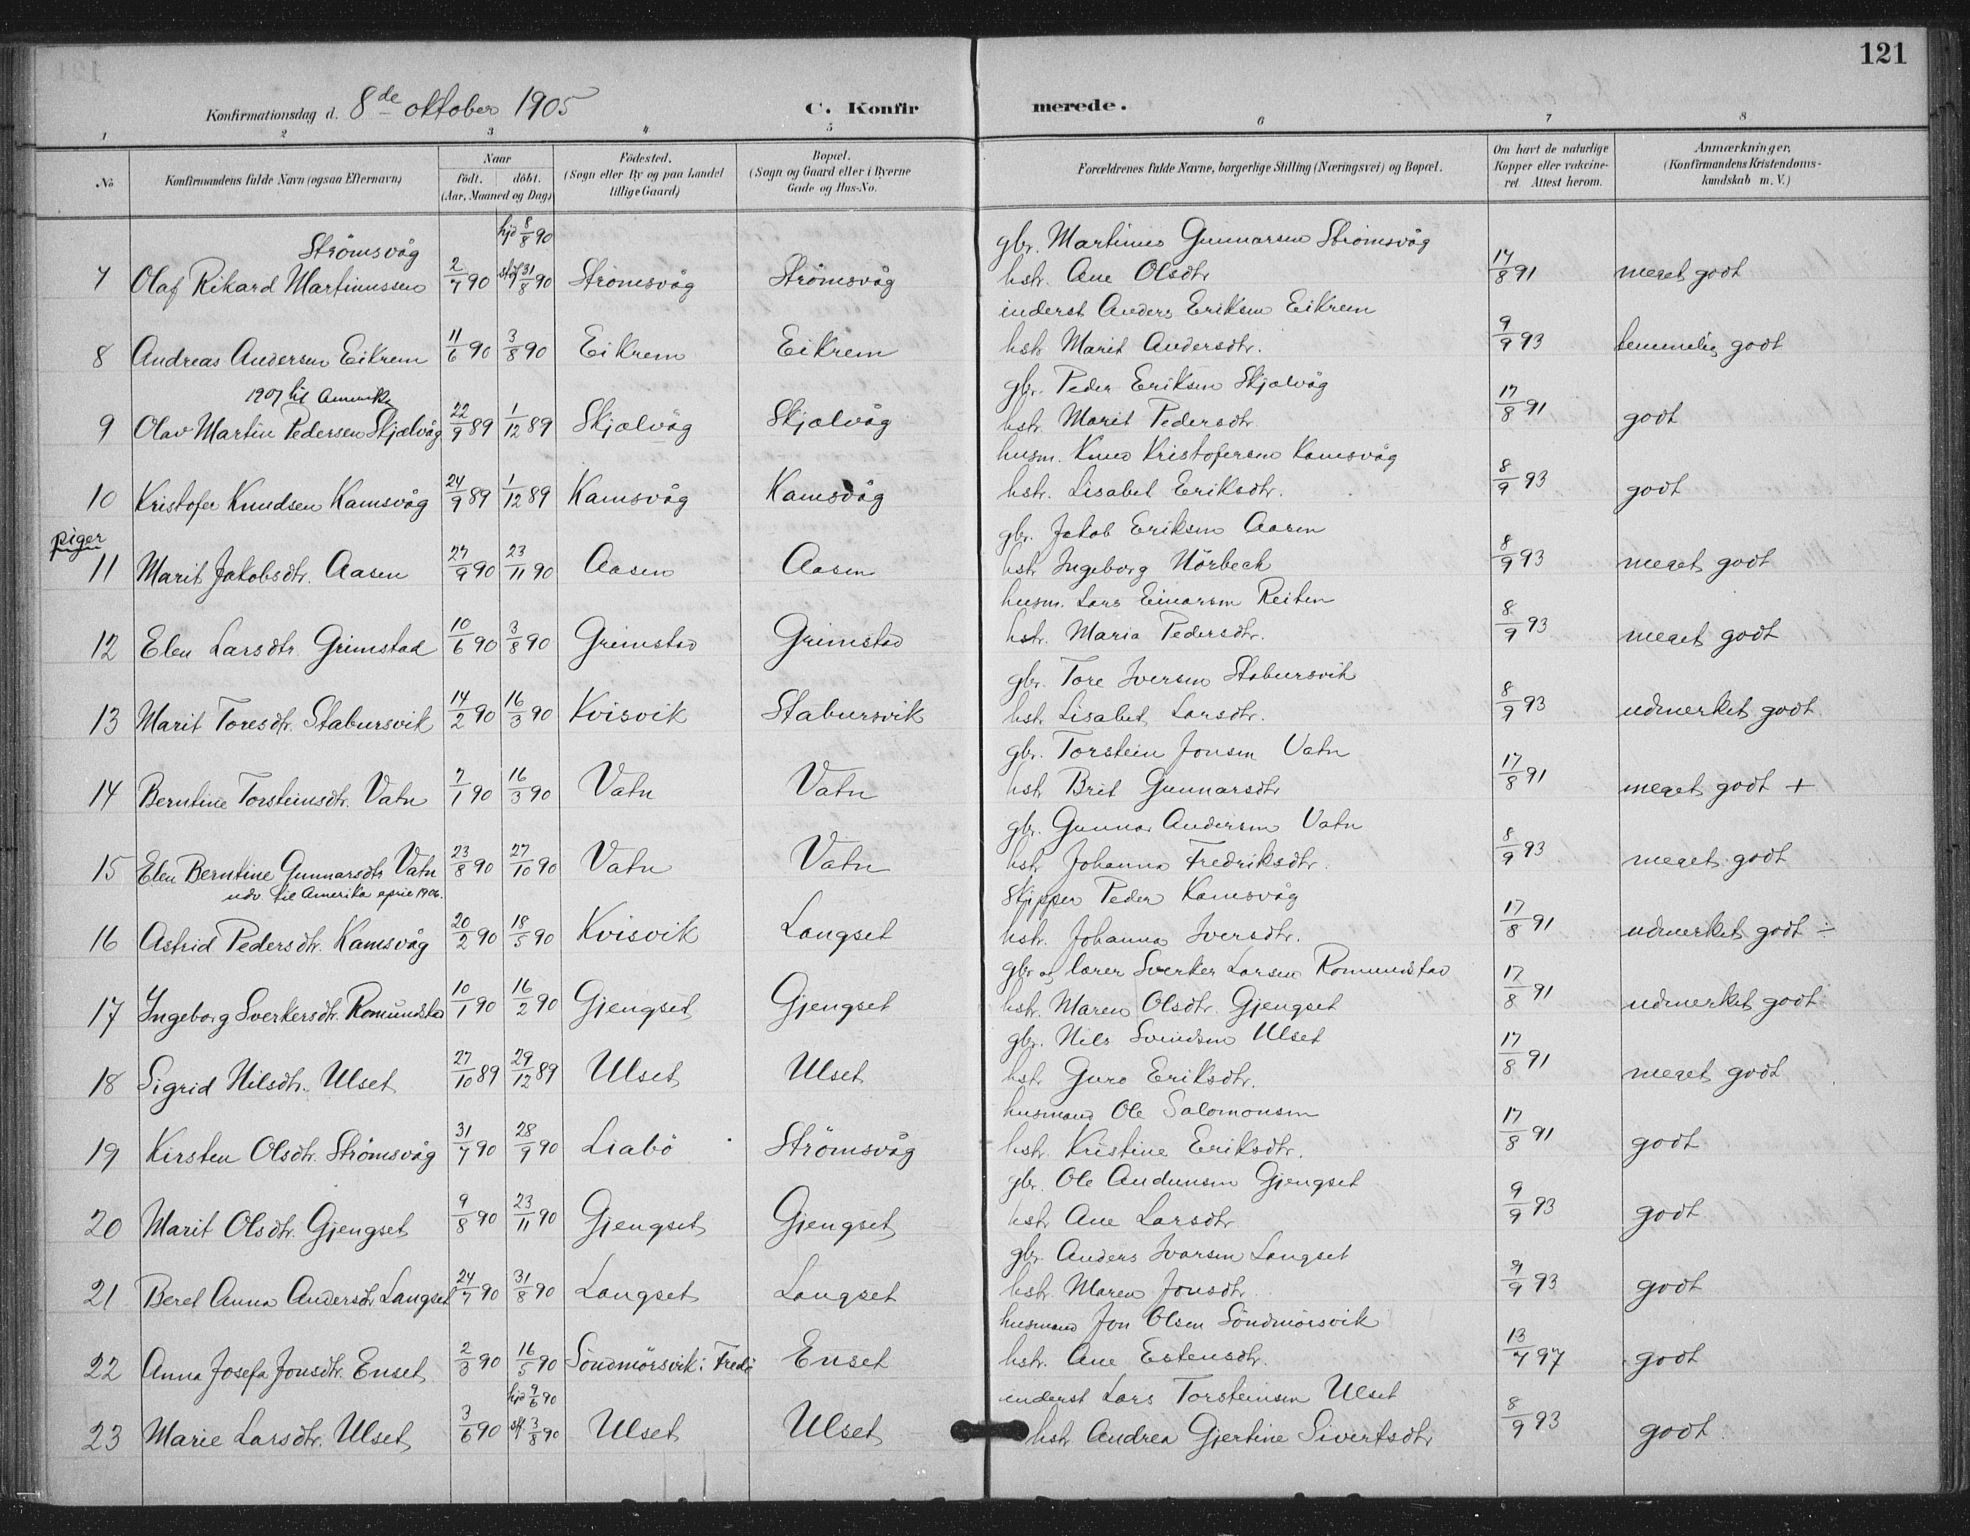 121
Konfirmationsdag d. 8de oktober 1905
C. Konfirmerede.
1 2 3 4 5 6 7 8
No
Konfirmandens fulde Navn (ogsaa Efternavn)
Naar
født. døbt.
(Aar, Maaned og Dag)
Fødested.
(Sogn eller By og paa Landet
tillige Gaard)
Bopæl.
(Sogn og Gaard eller i Byerne
Gade og Hus-No.
Forældrenes fulde Navne, borgerlige Stilling (Næringsvei) og Bopæl.
Om havt de naturlige
Kopper eller vakcine-
ret. Attest herom.
Anmærkninger,
(Konfirmandens Kristendoms-
kundskab m. V.)
Strömsvåg hjd 8/8 90 gbr. Martinus Gunnarsen Strömsvåg
7 Olaf Rikard Martinussen 2/7 90 stf 31/8 90 Strömsvåg Strömsvåg hstr. Ane Olsdtr 17/8 91 meget godt
inderst Anders Eriksen Eikrem
8 Andreas Andersen Eikrem 11/6 90 3/8 90 Eikrem Eikrem hstr Marit Andersdtr. 9/9 93 temmelig godt
1907 til Amerika gbr. Peder Eriksen Skjælvåg
9 Olav Martin Pedersen Skjælvåg 22/9 89 1/12 89 Skjælvåg Skjælvåg hstr. Marit Pedersdtr. 17/8 91 godt
husm. Knud Kristofersen Kamsvåg
10 Kristofer Knudsen Kamsvåg 24/9 89 1/12 89 Kamsvåg Kamsvåg hstr. Lisabet Eriksdtr. 8/9 93 godt
piger gbr. Jakob Eriksen Aasen
11 Marit Jakobsdtr. Aasen 27/9 90 23/11 90 Aasen Aasen hstr Ingeborg Nörbeck 8/9 93 meget godt
husm. Lars Einarsen Reiten
12 Elen Larsdtr. Grimstad 10/6 90 3/8 90 Grimstad Grimstad hstr. Maria Pedersdtr. 8/9 93 meget godt
gbr. Tore Iversen Stabursvik
13 Marit Toresdtr. Stabursvik 14/2 90 16/3 90 Kvisvik Stabursvik hstr. Lisabet Larsdtr. 8/9 93 udmerket godt
gbr. Torstein Jonsen Vatn
14 Berntine Torsteinsdtr. Vatn 7/1 90 16/3 90 Vatn Vatn hstr Brit Gunnarsdtr 17/8 91 meget godt +
gbr. Gunnar Andersen Vatn
15 Elen Berntine Gunnarsdtr Vatn 23/8 90 27/10 90 Vatn Vatn hstr Johanna Fredriksdtr. 8/9 93 meget godt
udv. til Amerika april 1906. Skipper Peder Kamsvåg
16 Astrid Pedersdtr. Kamsvåg 20/2 90 18/5 90 Kvisvik Langset hstr. Johanna Iversdtr. 17/8 91 udmerket godt ÷
gbr og lærer Sverker Larsen Romundstad
17 Ingeborg Sverkersdtr. Romundstad 10/1 90 16/2 90 Gjengset Gjengset hstr. Maren Olsdtr. Gjengset 17/8 91 udmerket godt
gbr. Nils Svendsen Ulset
18 Sigrid Nilsdtr. Ulset 27/10 89 29/12 89 Ulset Ulset hstr Guro Eriksdtr. 17/8 91 meget godt
husmand Ole Salomonsen
19 Kirsten Olsdtr. Strömsvåg 31/7 90 28/9 90 Liabö Strömsvåg hstr. Kristine Eriksdtr. 17/8 91 godt
gbr. Ole Andunsen Gjengset
20 Marit Olsdtr. Gjengset 9/8 90 23/11 90 Gjengset Gjengset hstr Ane Larsdtr 9/9 93 godt
gbr. Anders Ivarsen Langset
21 Beret Anna Andersdtr Langset 24/7 90 31/8 90 Langset Langset hstr. Maren Jonsdtr. 9/9 93 godt
husmand Jon Olsen Söndmörsvik
22 Anna Josefa Jonsdtr. Enset 2/3 90 16/5 90 Söndmörsvik i Fredö Enset hstr. Ane Estensdtr. 13/7 97 godt
hjd 9/6 90 inderst Lars Torsteinsen Ulset
23 Marie Larsdtr. Ulset 3/6 90 stf 3/8 90 Ulset Ulset hstr Andrea Gjertine Sivertsdtr 8/9 93 godt